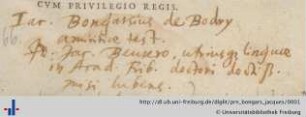 CVM PRIVILEGIO REGIS.
Iac. Bongarsius de Bodry
amicitiæ test.
Jac. Beurero, utriusq linguæ
in Acad. Frib. doctori doctiss.
misi lubens.
http://dl.ub.uni-freiburg.de/diglit/prv_bongars_jacques/0001
© Universitätsbibliothek Freiburg